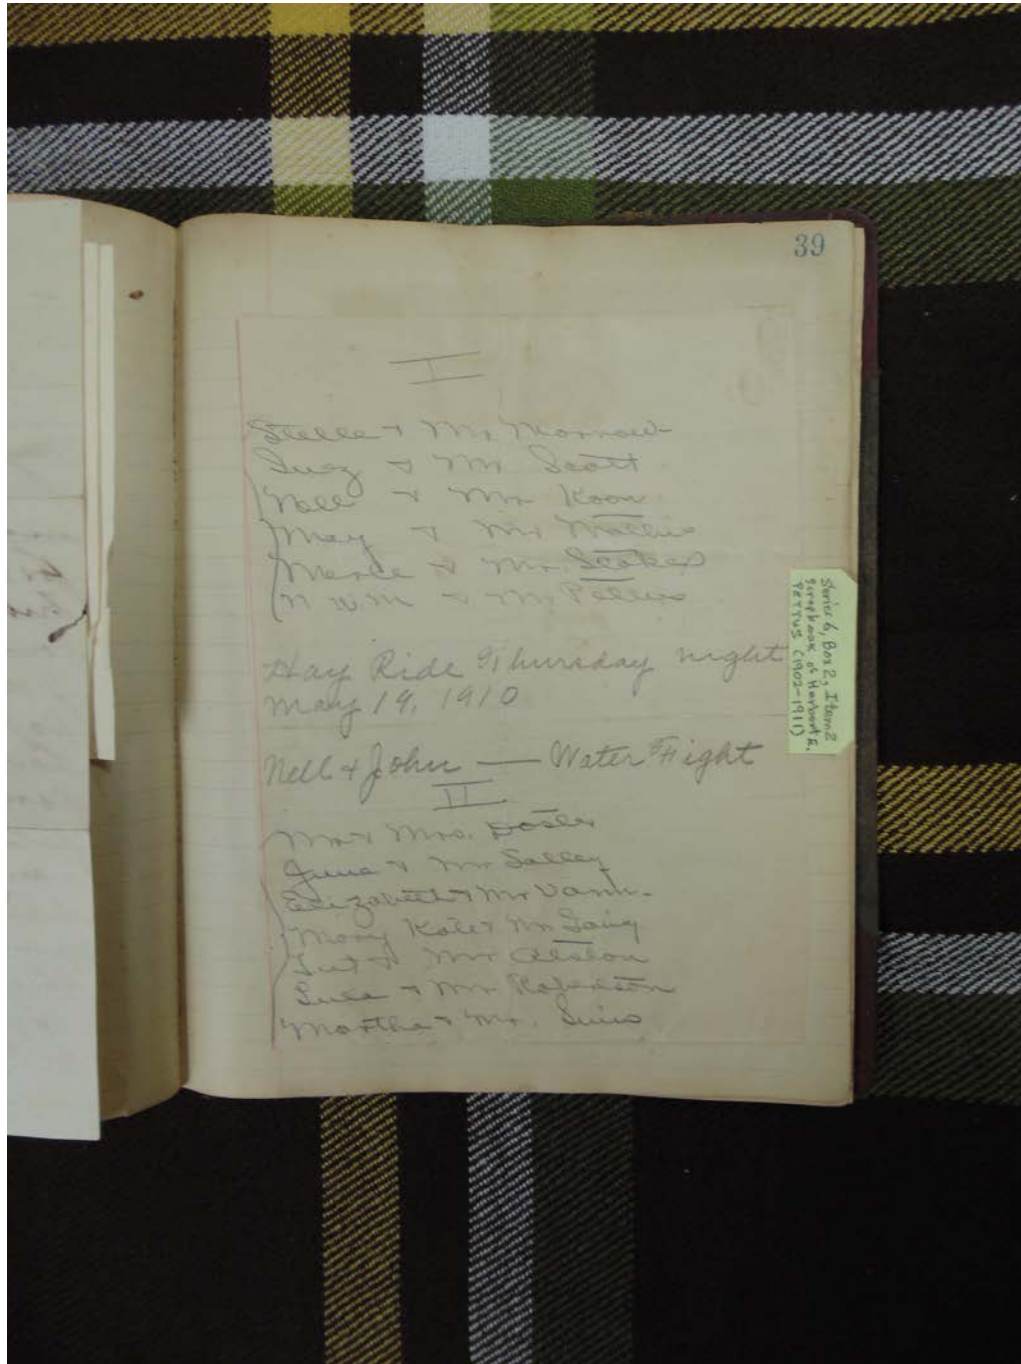 39
I
Stelle & Mr. Morrow
& Mr. Scott
Nell & Mr. Koon
May & Mr.
Merle & Mr. Stokes
N. W. M. & Mr.
Hay Ride Thursday night
May 19, 1910
Nell & John — Water Fight
II
Mr & Mrs. Doster
June & Mr Salley
Elizabeth & Mr Vann.
Mary Kate & Mr
& Mr Alston
& Mr
Martha & Mr. Sims
Series 6, Box 2, Item 2
Scrapbook of Herbert E.
Pettus (1902-1911)